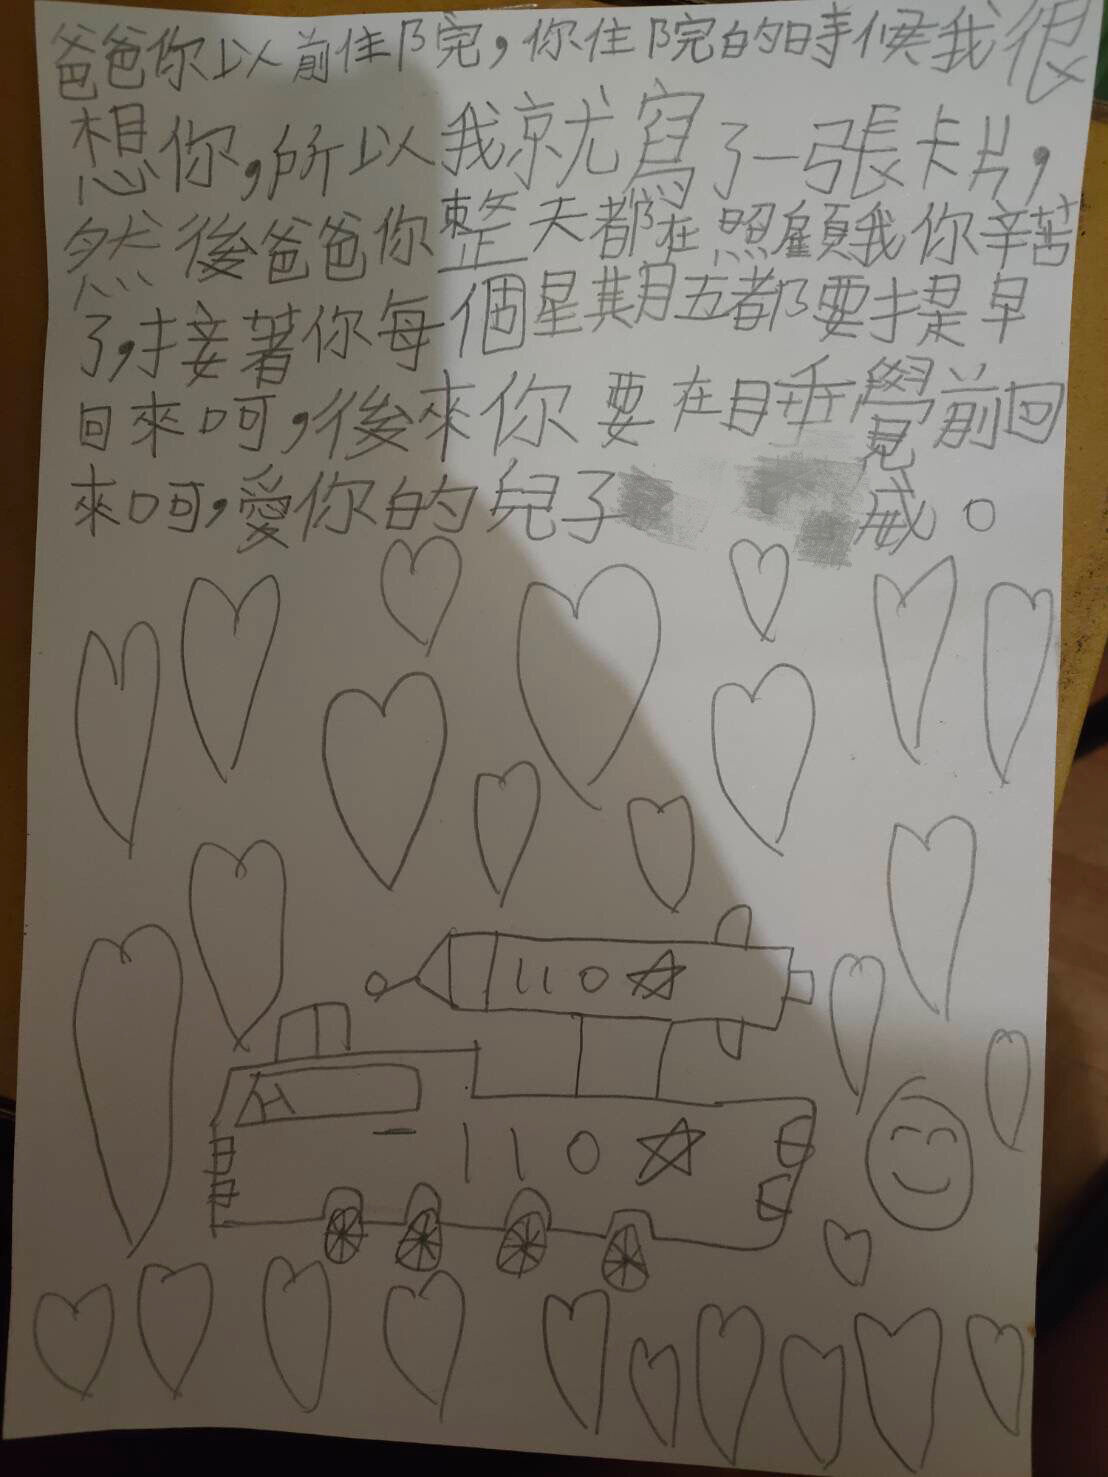 爸爸你以前住院，你住院的時候我很
想你，所以我就寫了一張卡片，
然後爸爸你整天都在照顧我你辛苦
了，接著你每個星期五都要提早
回來呵，後來你要在睡覺前回
來呵，愛你的兒子 威。
110☆
110☆